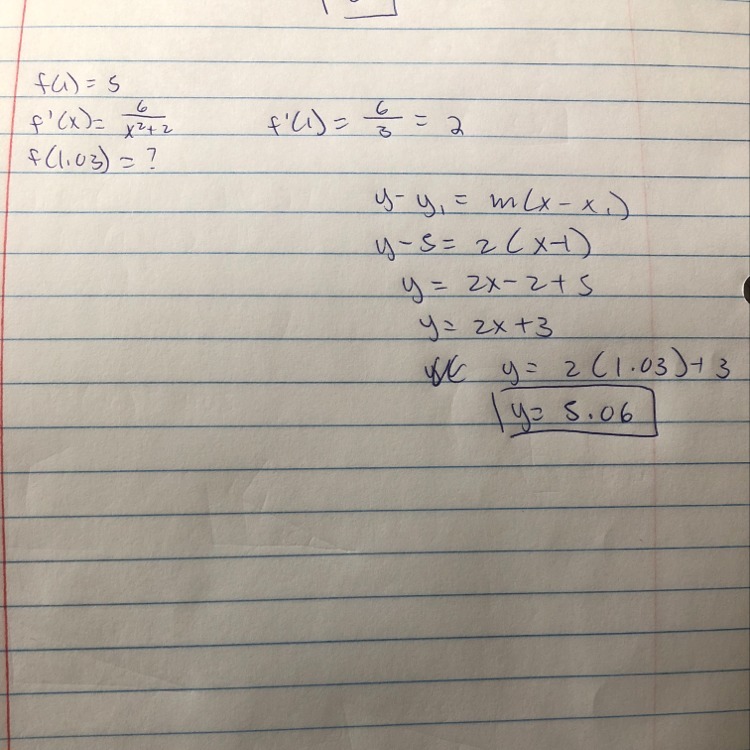 f(1) = 5
f'(x) = 6/(x²+2)    f'(1) = 6/3 = 2
f(1.03) = ?
y - y₁ = m(x - x₁)
y - 5 = 2(x-1)
y = 2x - 2 + 5
y = 2x + 3
y = 2(1.03) + 3
y = 5.06